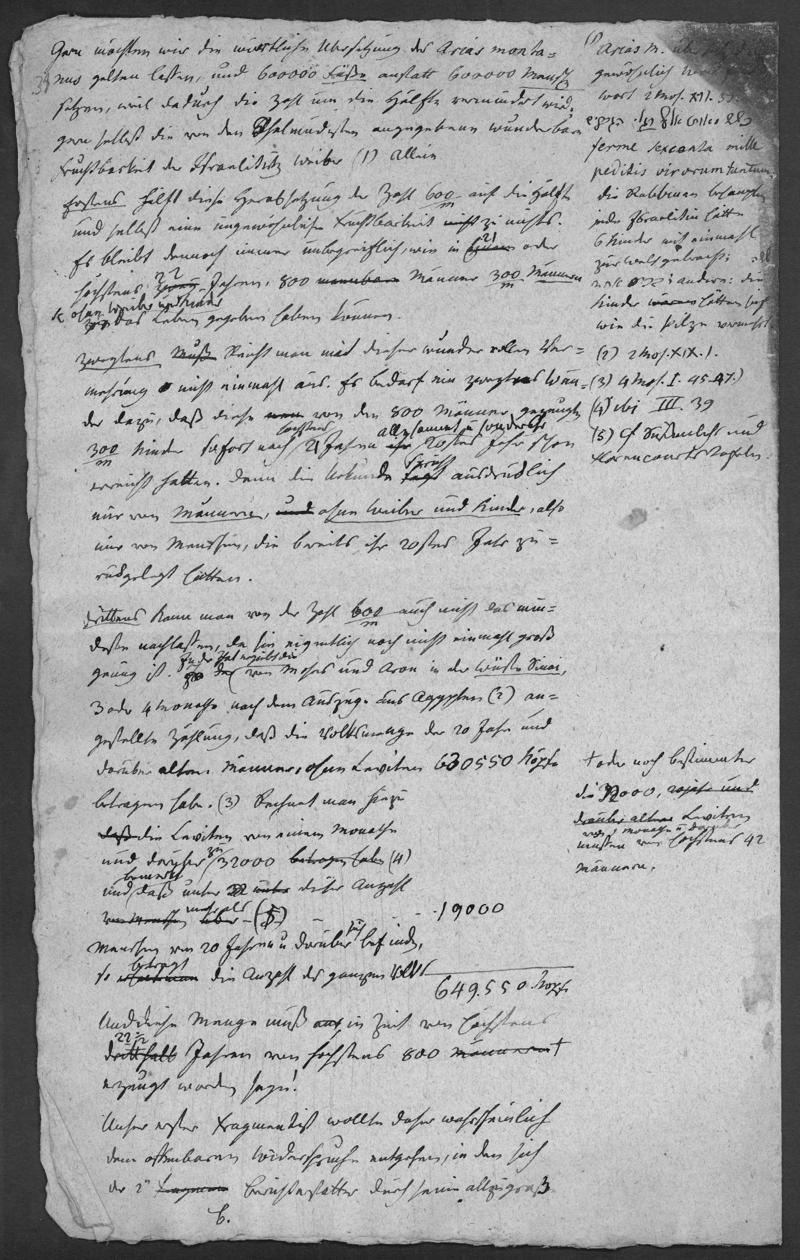 Gern möchten wir die wörtliche Übersetzung des Arias monta=
nus gelten lassen, und 600000 Füße anstatt 600000 Mensch
setzen, weil dadurch die Zahl um die Hälfte vermindert wird,
gern selbst die von den Thalmudisten angegebene wunderbare
Fruchtbarkeit der Israelitisch Weiber (1) allein
Erstens hilft diese Herabsetzung der Zahl 600/m auf die Hälfte
und selbst eine ungewöhnliche Fruchtbarkeit nicht zu nichts.
Es bleibt dennoch immer unbegreiflich, wie in 21 oder
höchstens 22 Jahren, 800 Männer 300/m Männern
ohne Weiber und Kinder
das Leben gegeben haben können.
Zweytens Reicht man mit dieser wundervollen Ver=
mehrung nicht einmahl aus. Es bedarf ein zweytes Wun=
der dazu, daß diese von den 800 Männer gezeugte
300/m Kinder sofort nach höchstens 21 Jahren allesammt u sonders ihr 20stes Jahr schon
erreicht hatten. Denn die Urkunde spricht ausdrücklich
nur von Männern, und ohne Weiber und Kinder, also
nur von Menschen, die bereits ihr 20stes Jahr zu=
rückgelegt hätten.
Drittens kann man von der Zahl 600/m auch nicht das min=
deste nachlassen, da sie eigentlich noch nicht einmahl groß
genug ist. von Moses und Aron in der Wüste Sinai,
3 oder 4 Monathe nach dem Auszuge aus Aegypten (2) an=
gestellte Zählung, daß die Volksmenge der 20 Jahr und
darüber alten Männer, ohne Leviten 630550 Köpfe
betragen habe. (3) Rechnet man hiezu
daß die Leviten von einem Monathe
und darüber 32000 betragen haben (4)
und bemerkt daß unter dieser Anzahl
mehr als (5) - - - 19000
Menschen von 20 Jahren u darüber sich befinden,
so beträgt die Anzahl des ganzen Volks
649.550 Köpfe
Und diese Menge muß in Zeit von höchstens
22 1/2 Jahren von höchstens 800 Männern †
erzeugt worden seyn!
Unser erster Fragmentist wollte daher wahrscheinlich
dem offenbaren Widerspruche entgehen, in den sich
der 2te Berichterstatter durch seine allzugroß
(1) Arias M.
gewöhnlich
wort 2 Mos. XII.
ferme sexcenta mille
peditis virorum tantum
die Rabbinen behaupten
jede Israelitin hätte
6 Kinder auf einmahl
zur Welt gebracht;
andere: die
Kinder hätten sich
wie die Pilze vermehrt.
(2) 2 Mos. XIX. 1.
(3) 4 Mos. I. 45.47.)
(4) ibi III. 39
(5) cf Süßmilchs und
Florencourts Tafeln.
† oder noch bestimmter
die 32000,
Leviten
von 1 Monath u darüber
mußten von höchstens 42
Männern.